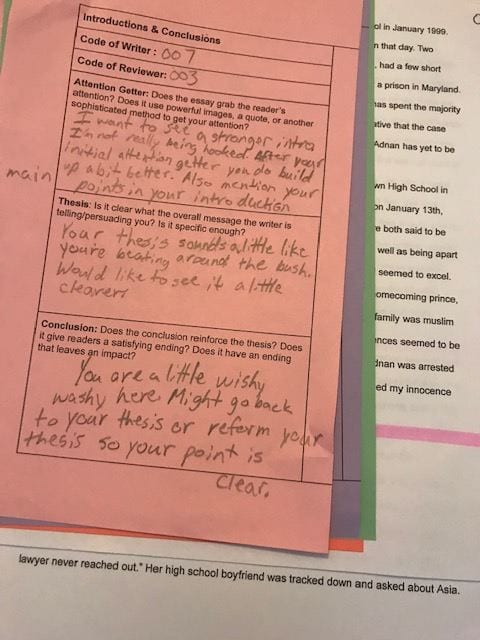 Introductions & Conclusions
Code of Writer: 007
Code of Reviewer: 003
Attention Getter: Does the essay grab the reader's
attention? Does it use powerful images, a quote, or another
sophisticated method to get your attention?
I want to see a stronger intro
I'm not really being hooked. After your
initial attention getter you do build
up a bit better. Also mention your
main points in your introduction
Thesis: Is it clear what the overall message the writer is
telling/persuading you? Is it specific enough?
Your thesis sounds a little like
you're beating around the bush.
Would like to see it a little
clearer!
Conclusion: Does the conclusion reinforce the thesis? Does
it give readers a satisfying ending? Does it have an ending
that leaves an impact?
You are a little wishy
washy here. Might go back
to your thesis or reform your
thesis so your point is
clear.
ol in January 1999.
n that day. Two
had a few short
a prison in Maryland.
has spent the majority
ative that the case
Adnan has yet to be
wn High School in
on January 13th,
e both said to be
well as being apart
seemed to excel.
omecoming prince,
family was muslim
nces seemed to be
dnan was arrested
ed my innocence
lawyer never reached out." Her high school boyfriend was tracked down and asked about Asia.